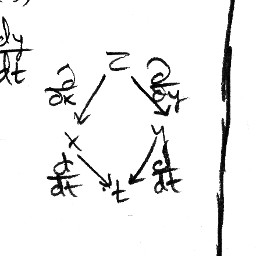 dy/dt
z
∂/∂x ∂/∂y
x y
d/dt t d/dt